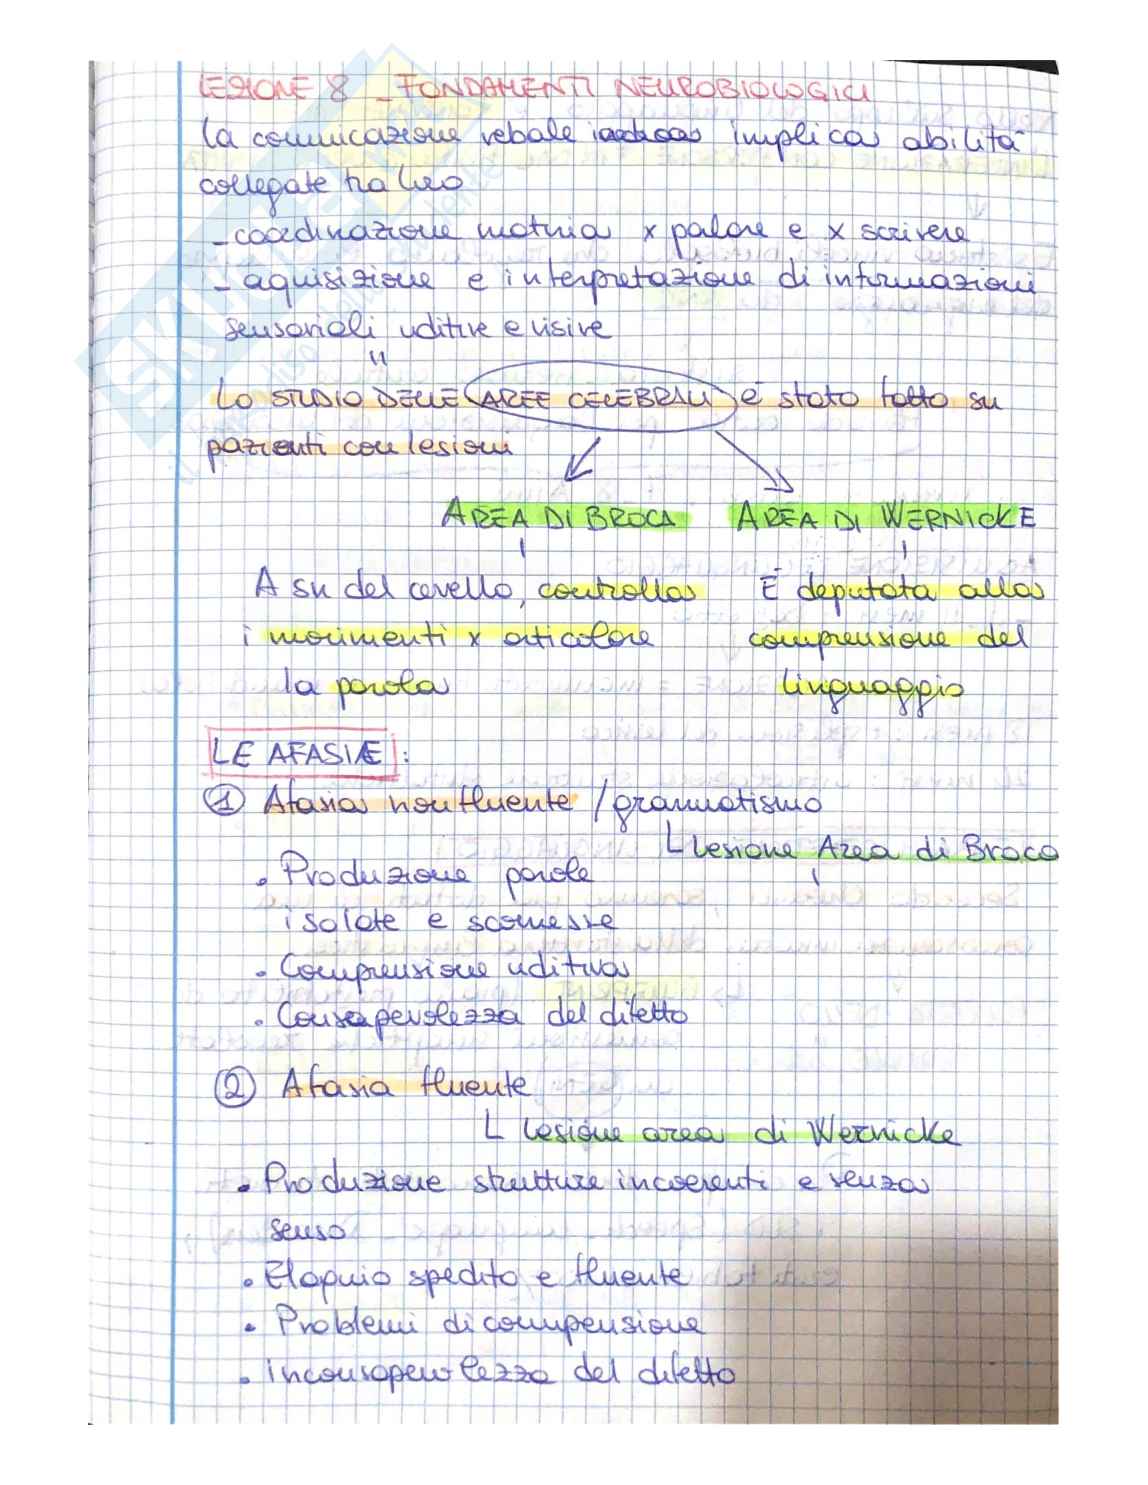 LEZIONE 8 _ FONDAMENTI NEUROBIOLOGICI
La comunicazione vebale implica abilità
collegate tra loro
- coordinazione motoria x parlare e x scrivere
- aquisizione e interpretazione di informazioni
sensoriali uditive e visive
LO STUDIO DELLE AREE CELEBRALI è stato fatto su
pazienti con lesioni
AREA DI BROCA AREA DI WERNICKE
A sx del cervello, controlla È deputata alla
i movimenti x articolare comprensione del
la parola linguaggio
LE AFASIE :
1 Afasia non fluente / grammatismo
L lesione Area di Broca
• Produzione parole
isolate e sconnesse
• Comprensione uditiva
• Consapevolezza del difetto
2 Afasia fluente
L lesione area di Wernicke
• Produzione strutture incoerenti e senza
senso
• Eloquio spedito e fluente
• Problemi di compensione
• inconsapevolezza del difetto